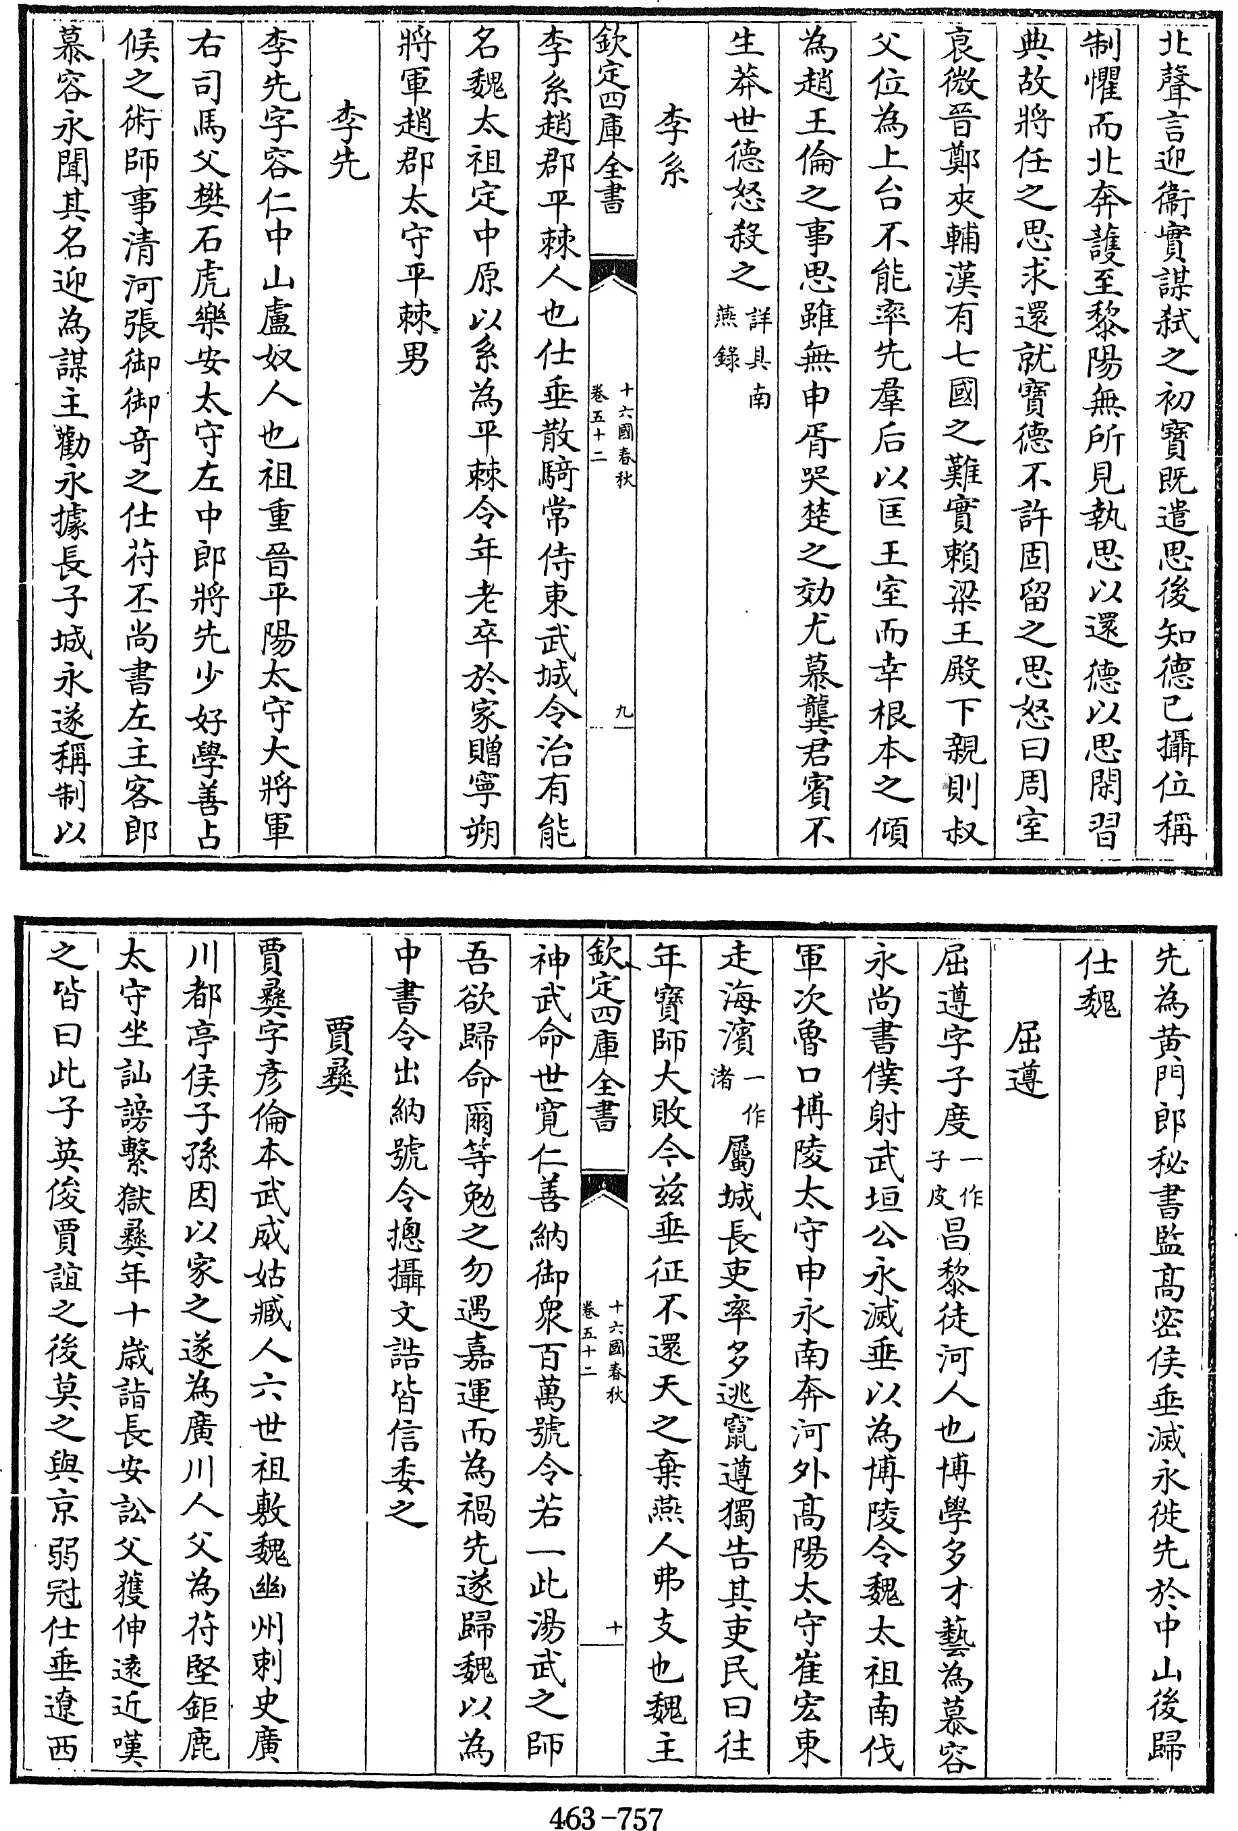 北聲言迎衞實謀弑之初寶既遣思後知德已攝位稱
制懼而北奔護至黎陽無所見執思以還德以思閑習
典故將任之思求還就寶德不許固留之思怒曰周室
衰微晉鄭夾輔漢有七國之難實賴梁王殿下親則叔
父位為上台不能率先羣后以匡王室而幸根本之傾
為趙王倫之事思雖無申胥哭楚之効尤慕龔君賓不
生莽世德怒殺之詳具南燕錄
李系
欽定四庫全書
十六國春秋
卷五十二
九
李系趙郡平棘人也仕垂散騎常侍東武城令治有能
名魏太祖定中原以系為平棘令年老卒於家贈寧朔
將軍趙郡太守平棘男
李先
李先字容仁中山盧奴人也祖重晉平陽太守大將軍
右司馬父樊石虎樂安太守左中郎將先少好學善占
候之術師事清河張御御奇之仕苻丕尚書左主客郎
慕容永聞其名迎為謀主勸永據長子城永遂稱制以
先為黄門郎秘書監髙密侯垂滅永徙先於中山後歸
仕魏
屈遵
屈遵字子度一作子皮昌黎徒河人也博學多才藝為慕容
永尚書僕射武垣公永滅垂以為博陵令魏太祖南伐
軍次魯口博陵太守申永南奔河外髙陽太守崔宏東
走海濱一作渚屬城長吏率多逃竄遵獨告其吏民曰往
年寶師大敗今兹垂征不還天之棄燕人弗支也魏主
欽定四庫全書
十六國春秋
卷五十二
十
神武命世寛仁善納御衆百萬號令若一此湯武之師
吾欲歸命爾等勉之勿遇嘉運而為禍先遂歸魏以為
中書令出納號令摠攝文誥皆信委之
賈彝
賈彝字彦倫本武威姑臧人六世祖敷魏幽州刺史廣
川都亭侯子孫因以家之遂為廣川人父為苻堅鉅鹿
太守坐訕謗繫獄彝年十歳詣長安訟父獲伸遠近嘆
之皆曰此子英俊賈誼之後莫之與京弱冠仕垂遼西
463-757